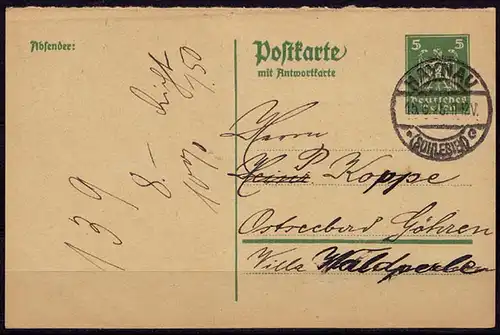 Absender:
Postkarte
mit Antwortkarte
5 5
Deutsches
Reich
HAYNAU
(SCHLESIEN)
Herrn
P. Koppe
Ostseebad Göhren
Villa Waldperle
139
8.–
10%